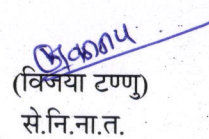 (विजया टण्णु)
से.नि.ना.त.